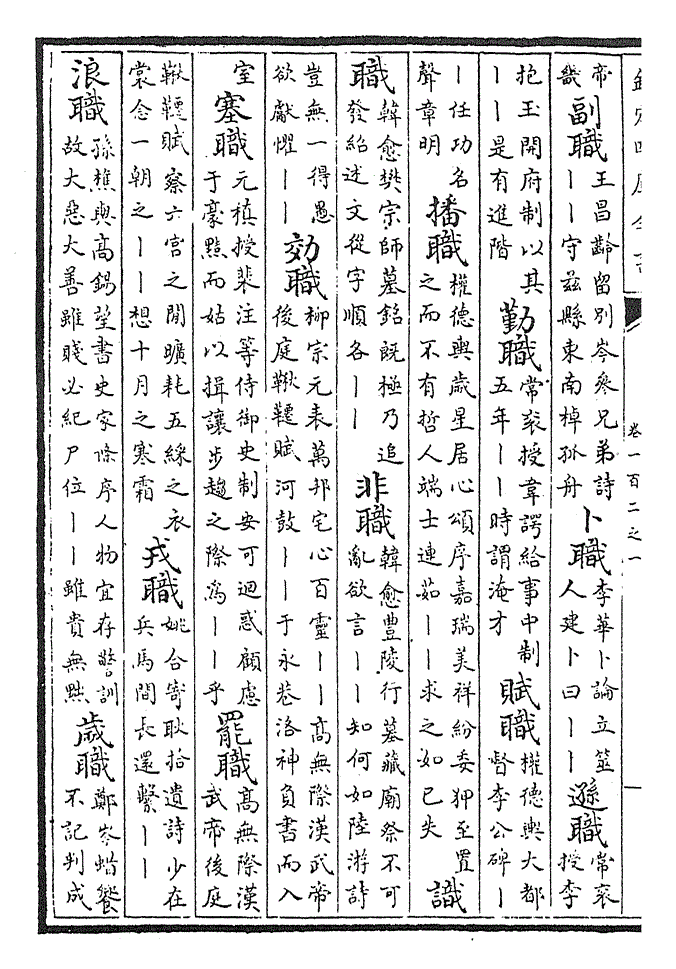 欽定四庫全書
卷一百二之一
帝
畿
副職
王昌齡留別岑參兄弟詩
｜｜守茲縣東南棹孤舟
卜職
李華卜論立筮
人建卜曰｜｜
遜職
常衮
授李
抱玉開府制以其
｜｜是有進階
勤職
常衮授韋諤給事中制
五年｜｜時謂淹才
賦職
權德輿大都
督李公碑｜
｜任功名
聲章明
播職
權德輿歲星居心頌序嘉瑞美祥紛委狎至置
之而不有哲人端士連茹｜｜求之如已失
識
職
韓愈樊宗師墓銘既極乃追
發紹述文從字順各｜｜
非職
韓愈豐陵行墓藏廟祭不可
亂欲言｜｜知何如陸游詩
豈無一得愚
欲獻懼｜｜
効職
柳宗元表萬邦宅心百靈｜｜高無際漢武帝
後庭鞦韆賦河鼓｜｜于永巷洛神負書而入
室
塞職
元稹授裴注等侍御史制安可迴惑顧慮
于豪黠而姑以揖讓步趨之際為｜｜乎
罷職
高無際漢
武帝後庭
鞦韆賦察六宮之閒曠耗五綵之衣
裳念一朝之｜｜想十月之寒霜
戎職
姚合寄耿拾遺詩少在
兵馬間長還繫｜｜
浪職
孫樵與高錫望書史家條序人物宜存警訓
故大惡大善雖賤必紀尸位｜｜雖貴無黜
歲職
鄭岑蜡饗
不記判成